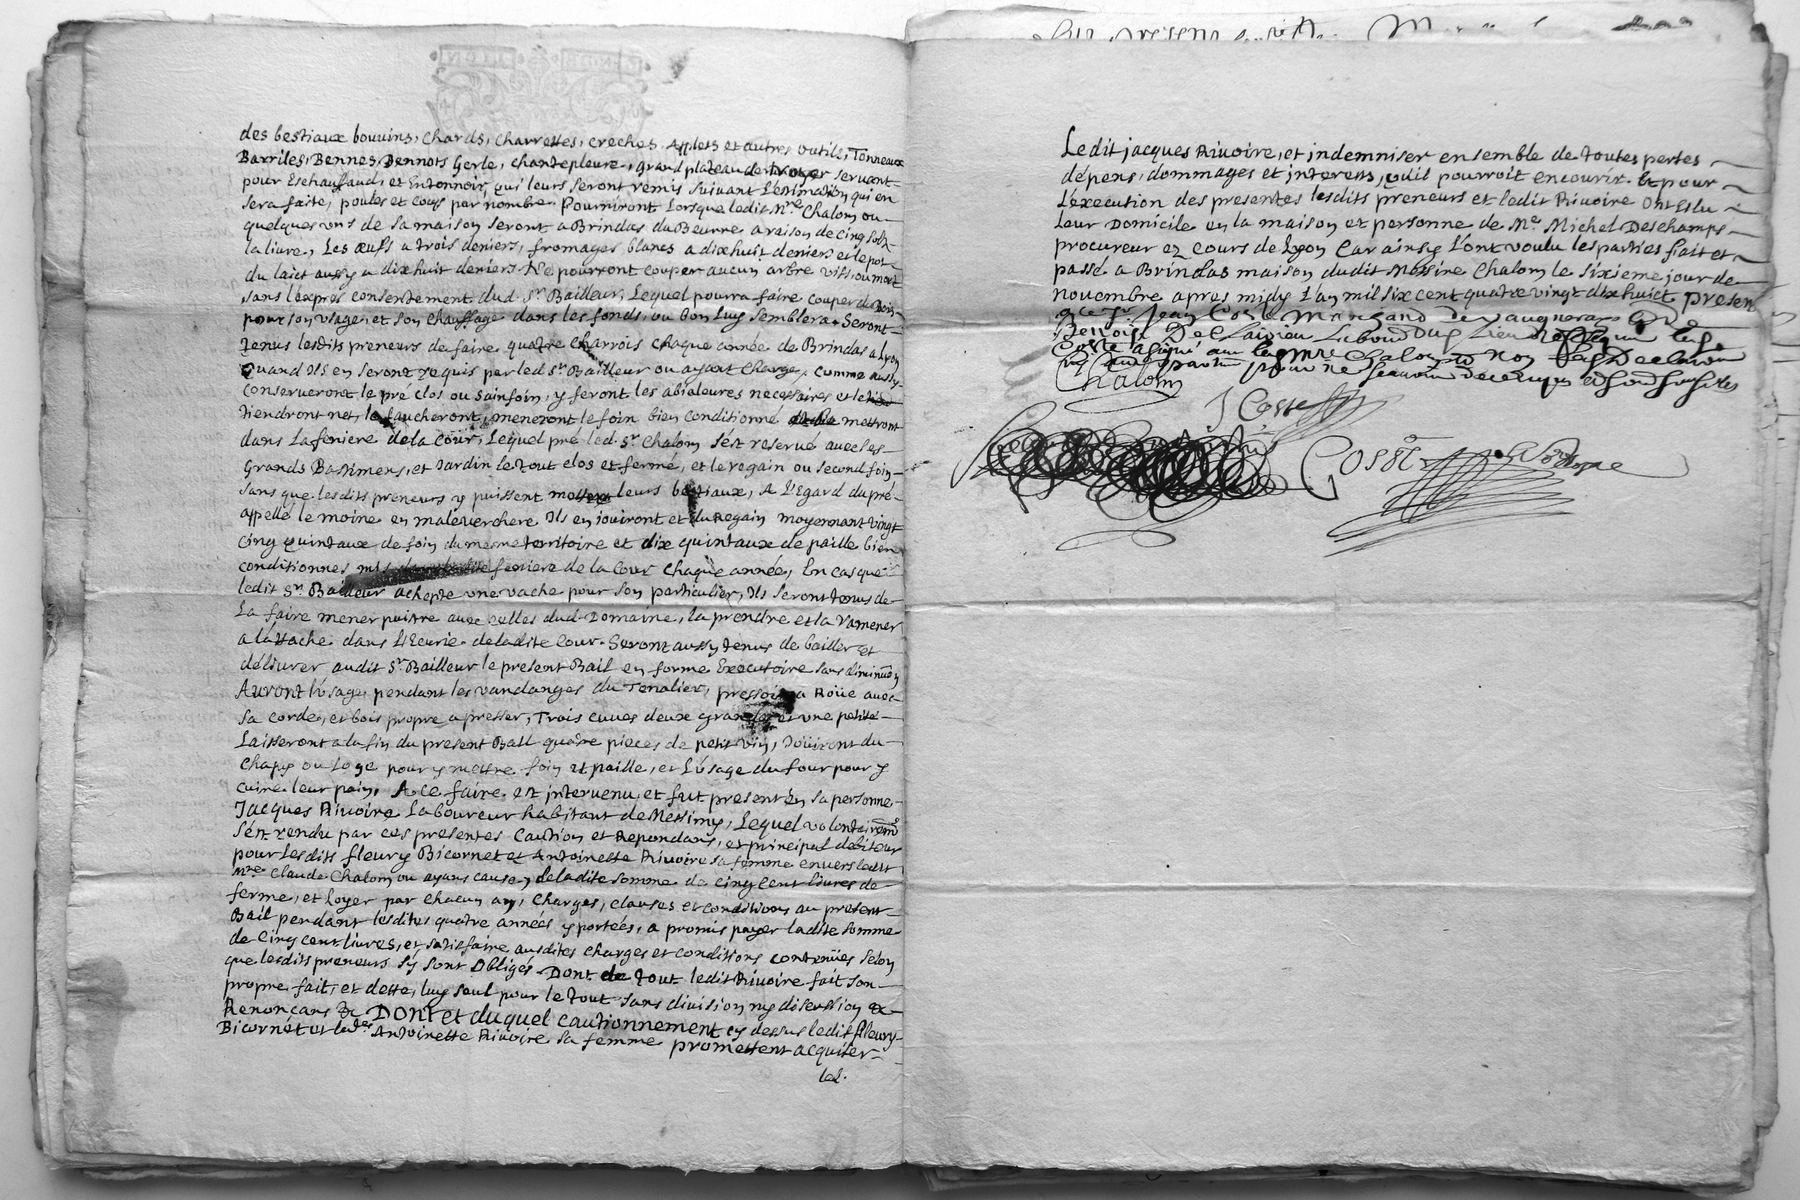 des bestiaux bouuins, Chards, Charrettes, creches, Applets et autres outils, Tonneaux
Barriles, Bennes, Bennots Gerle, chantepleure, grand plateau de servant
pour Eschauffaud, et Entonnoir, qui leurs seront remis suivant L'estimation qui en
sera faite, poules et coqs par nombre. Fourniront Lorsque ledit Mre Chalom ou
quelques uns de sa maison seront a Brindas du Beurre a raison de cinq sols
la liure, Les œufs a trois deniers, fromages blancs a dixhuit deniers et le pot
du laict aussy a dixhuit deniers. Ne pourront couper aucun arbre vifs, ou mort
sans l'exprés consentement dud. Sr Bailleur, Lequel pourra faire couper du Bois
pour son usage, et son chauffage dans les fonds, ou bon Luy semblera. Seront
tenus lesdits preneurs de faire quatre charrois chaque année de Brindas a Lyon
quand Ils en seront requis par led. Sr Bailleur ou ayant Charge, comme aussy
conserueront le pré clos ou Sainfoin, y feront les abialeures necessaires et le
tiendront net, le faucheront, meneront le foin bien conditionné mettront
dans La feniere de la Cour, Lequel pré led. Sr Chalom s'est reserué auec les
Grands Bastimens, et Jardin le tout clos et fermé, et le regain ou second foin
sans que lesdits preneurs y puissent leurs bestiaux, A L'Egard du pré
appellé le moine en maleverchere Ils en iouiront et du Regain moyennant vingt
cinq quintaux de foin du mesme territoire et dix quintaux de paille bien
conditionnes mis feniere de la Cour chaque année, En cas que
ledit Sr Bailleur achepte une vache pour son particulier, Ils seront tenus de
La faire mener puitre auec celles dud. Domaine, la prendre et la Ramener
a l'attache dans L'Ecurie de ladite Cour. Seront aussy tenus de bailler et
déliurer audit Sr Bailleur le present Bail en forme Executoire sans diminuon
Auront l'usage pendant les vandanges du Tenalier, pressoir a Roüe auec
sa corde, et bois propre a presser, Trois cuues deux grandes et une petite
Laisseront a la fin du present Bail quatre pieces de petit vin, Joüiront du
Chapy ou Loge pour y mettre foin et paille, et L'usage du four pour y
cuire leur pain, A ce faire est intervenu et fut present En sa personne
Jacques Riuoire Laboureur habitant de Messimy, Lequel volontairemt
s'est rendu par ces presentes Caution et Repondant, et principal debiteur
pour lesdits fleury Bicornet et Antoinette Riuoire sa femme enuers ledit
Mre Claude Chalom ou ayans cause, de ladite somme de cinq cent liures de
ferme, et loyer par chacun an, Charges, clauses et conditions au present
Bail pendant lesdites quatre années y portées, a promis payer ladite somme
de Cinq cent liures, et satisfaire ausdites charges et conditions contenües selon
que lesdits preneurs s'y sont obligés. Dont de tout ledit Riuoire fait son
propre fait, et dette, luy seul pour le tout sans diuision ny discussion &
Renonçans &c Dont et duquel cautionnement cy dessus ledit fleury
Bicornet et lade Antoinette Riuoire sa femme promettent acquiter
led.
Ledit jacques Riuoire, et indemniser ensemble de toutes pertes
dépens, dommages et interests, qu'il pourroit encourir. Et pour
L'execution des presentes lesdits preneurs et ledit Riuoire Ont Eslu
leur Domicile en la maison et personne de Me Michel Deschamps
procureur ez Cours de Lyon Car ainsy L'ont voulu les parties fait et
passé a Brindas maison dudit Messire Chalom le sixieme jour de
novembre apres midy L'an mil six cent quatre vingt dix huict presen
Jean Coste Marchand de vaugneray
Benoist
Coste a signé auec led Mre Chalom et non
Chalom
J Coste
Coste